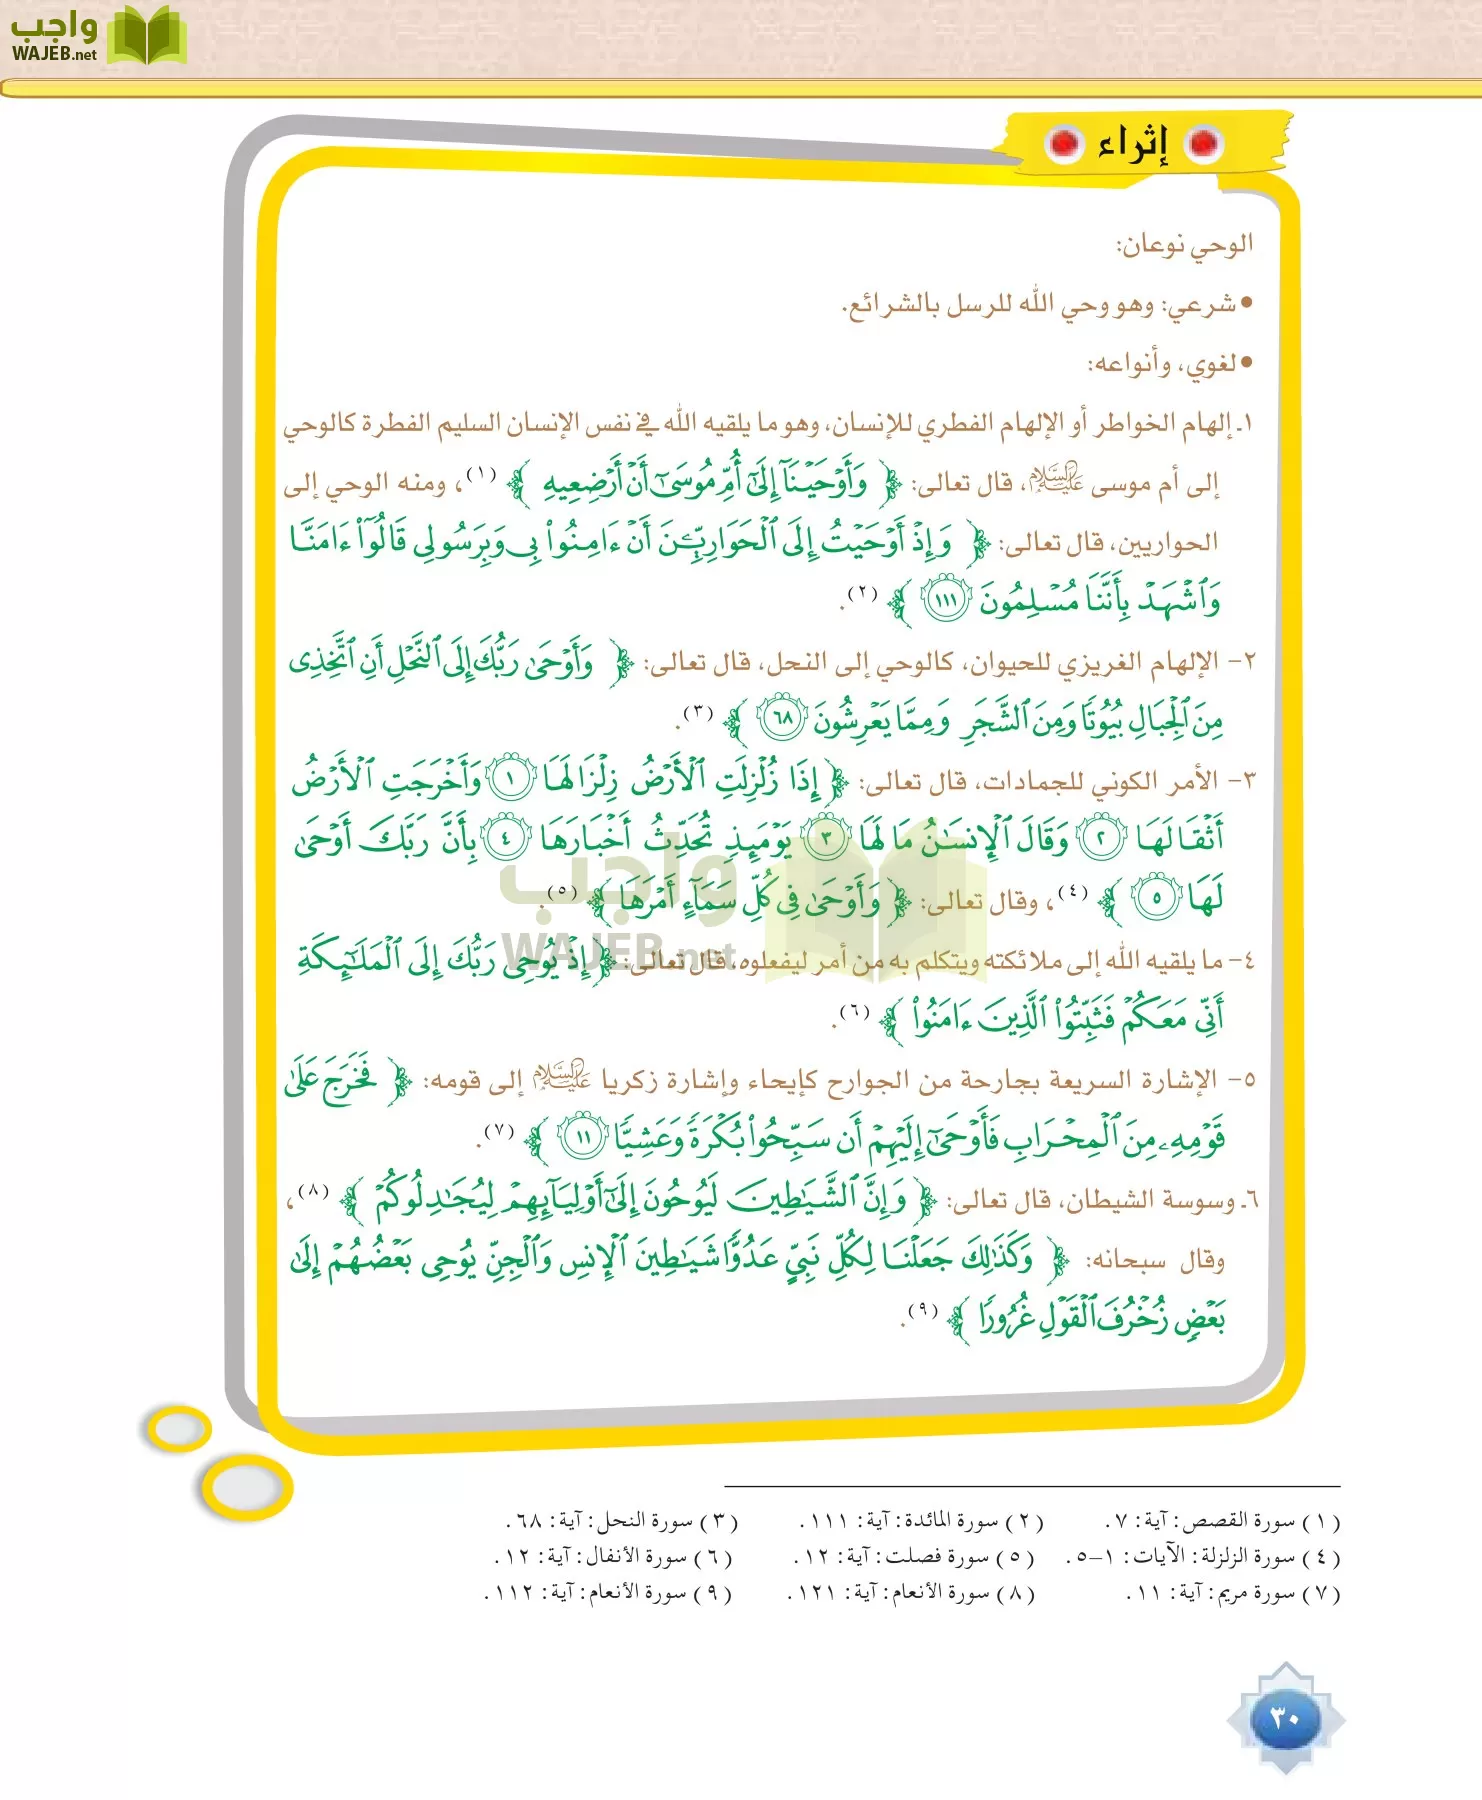 واجب
WAJEB.net
إثراء
الوحي نوعان:
• شرعي: وهو وحي الله للرسل بالشرائع.
• لغوي، وأنواعه:
١ـ إلهام الخواطر أو الإلهام الفطري للإنسان، وهو ما يلقيه الله في نفس الإنسان السليم الفطرة كالوحي
إلى أم موسى عليه السلام، قال تعالى: ﴿ وَأَوْحَيْنَآ إِلَىٰٓ أُمِّ مُوسَىٰٓ أَنْ أَرْضِعِيهِ ﴾ (١)، ومنه الوحي إلى
الحواريين، قال تعالى: ﴿ وَإِذْ أَوْحَيْتُ إِلَى ٱلْحَوَارِيِّـۧنَ أَنْ ءَامِنُوا۟ بِى وَبِرَسُولِى قَالُوٓا۟ ءَامَنَّا
وَٱشْهَدْ بِأَنَّنَا مُسْلِمُونَ ١١١ ﴾ (٢).
٢- الإلهام الغريزي للحيوان، كالوحي إلى النحل، قال تعالى: ﴿ وَأَوْحَىٰ رَبُّكَ إِلَى ٱلنَّحْلِ أَنِ ٱتَّخِذِى
مِنَ ٱلْجِبَالِ بُيُوتًا وَمِنَ ٱلشَّجَرِ وَمِمَّا يَعْرِشُونَ ٦٨ ﴾ (٣).
٣- الأمر الكوني للجمادات، قال تعالى: ﴿ إِذَا زُلْزِلَتِ ٱلْأَرْضُ زِلْزَالَهَا ١ وَأَخْرَجَتِ ٱلْأَرْضُ
أَثْقَالَهَا ٢ وَقَالَ ٱلْإِنسَـٰنُ مَا لَهَا ٣ يَوْمَئِذٍ تُحَدِّثُ أَخْبَارَهَا ٤ بِأَنَّ رَبَّكَ أَوْحَىٰ
لَهَا ٥ ﴾ (٤)، وقال تعالى: ﴿ وَأَوْحَىٰ فِى كُلِّ سَمَآءٍ أَمْرَهَا ﴾ (٥).
٤- ما يلقيه الله إلى ملائكته ويتكلم به من أمر ليفعلوه، قال تعالى: ﴿ إِذْ يُوحِى رَبُّكَ إِلَى ٱلْمَلَـٰٓئِكَةِ
أَنِّى مَعَكُمْ فَثَبِّتُوا۟ ٱلَّذِينَ ءَامَنُوا۟ ﴾ (٦).
٥- الإشارة السريعة بجارحة من الجوارح كإيحاء وإشارة زكريا عليه السلام إلى قومه: ﴿ فَخَرَجَ عَلَىٰ
قَوْمِهِۦ مِنَ ٱلْمِحْرَابِ فَأَوْحَىٰٓ إِلَيْهِمْ أَن سَبِّحُوا۟ بُكْرَةً وَعَشِيًّا ١١ ﴾ (٧).
٦ـ وسوسة الشيطان، قال تعالى: ﴿ وَإِنَّ ٱلشَّيَـٰطِينَ لَيُوحُونَ إِلَىٰٓ أَوْلِيَآئِهِمْ لِيُجَـٰدِلُوكُمْ ﴾ (٨)،
وقال سبحانه: ﴿ وَكَذَٰلِكَ جَعَلْنَا لِكُلِّ نَبِىٍّ عَدُوًّا شَيَـٰطِينَ ٱلْإِنسِ وَٱلْجِنِّ يُوحِى بَعْضُهُمْ إِلَىٰ
بَعْضٍ زُخْرُفَ ٱلْقَوْلِ غُرُورًا ﴾ (٩).
واجب
WAJEB.net
(١) سورة القصص: آية: ٧. (٢) سورة المائدة: آية: ١١١. (٣) سورة النحل: آية: ٦٨.
(٤) سورة الزلزلة: الآيات: ١–٥. (٥) سورة فصلت: آية: ١٢. (٦) سورة الأنفال: آية: ١٢.
(٧) سورة مريم: آية: ١١. (٨) سورة الأنعام: آية: ١٢١. (٩) سورة الأنعام: آية: ١١٢.
٣٠